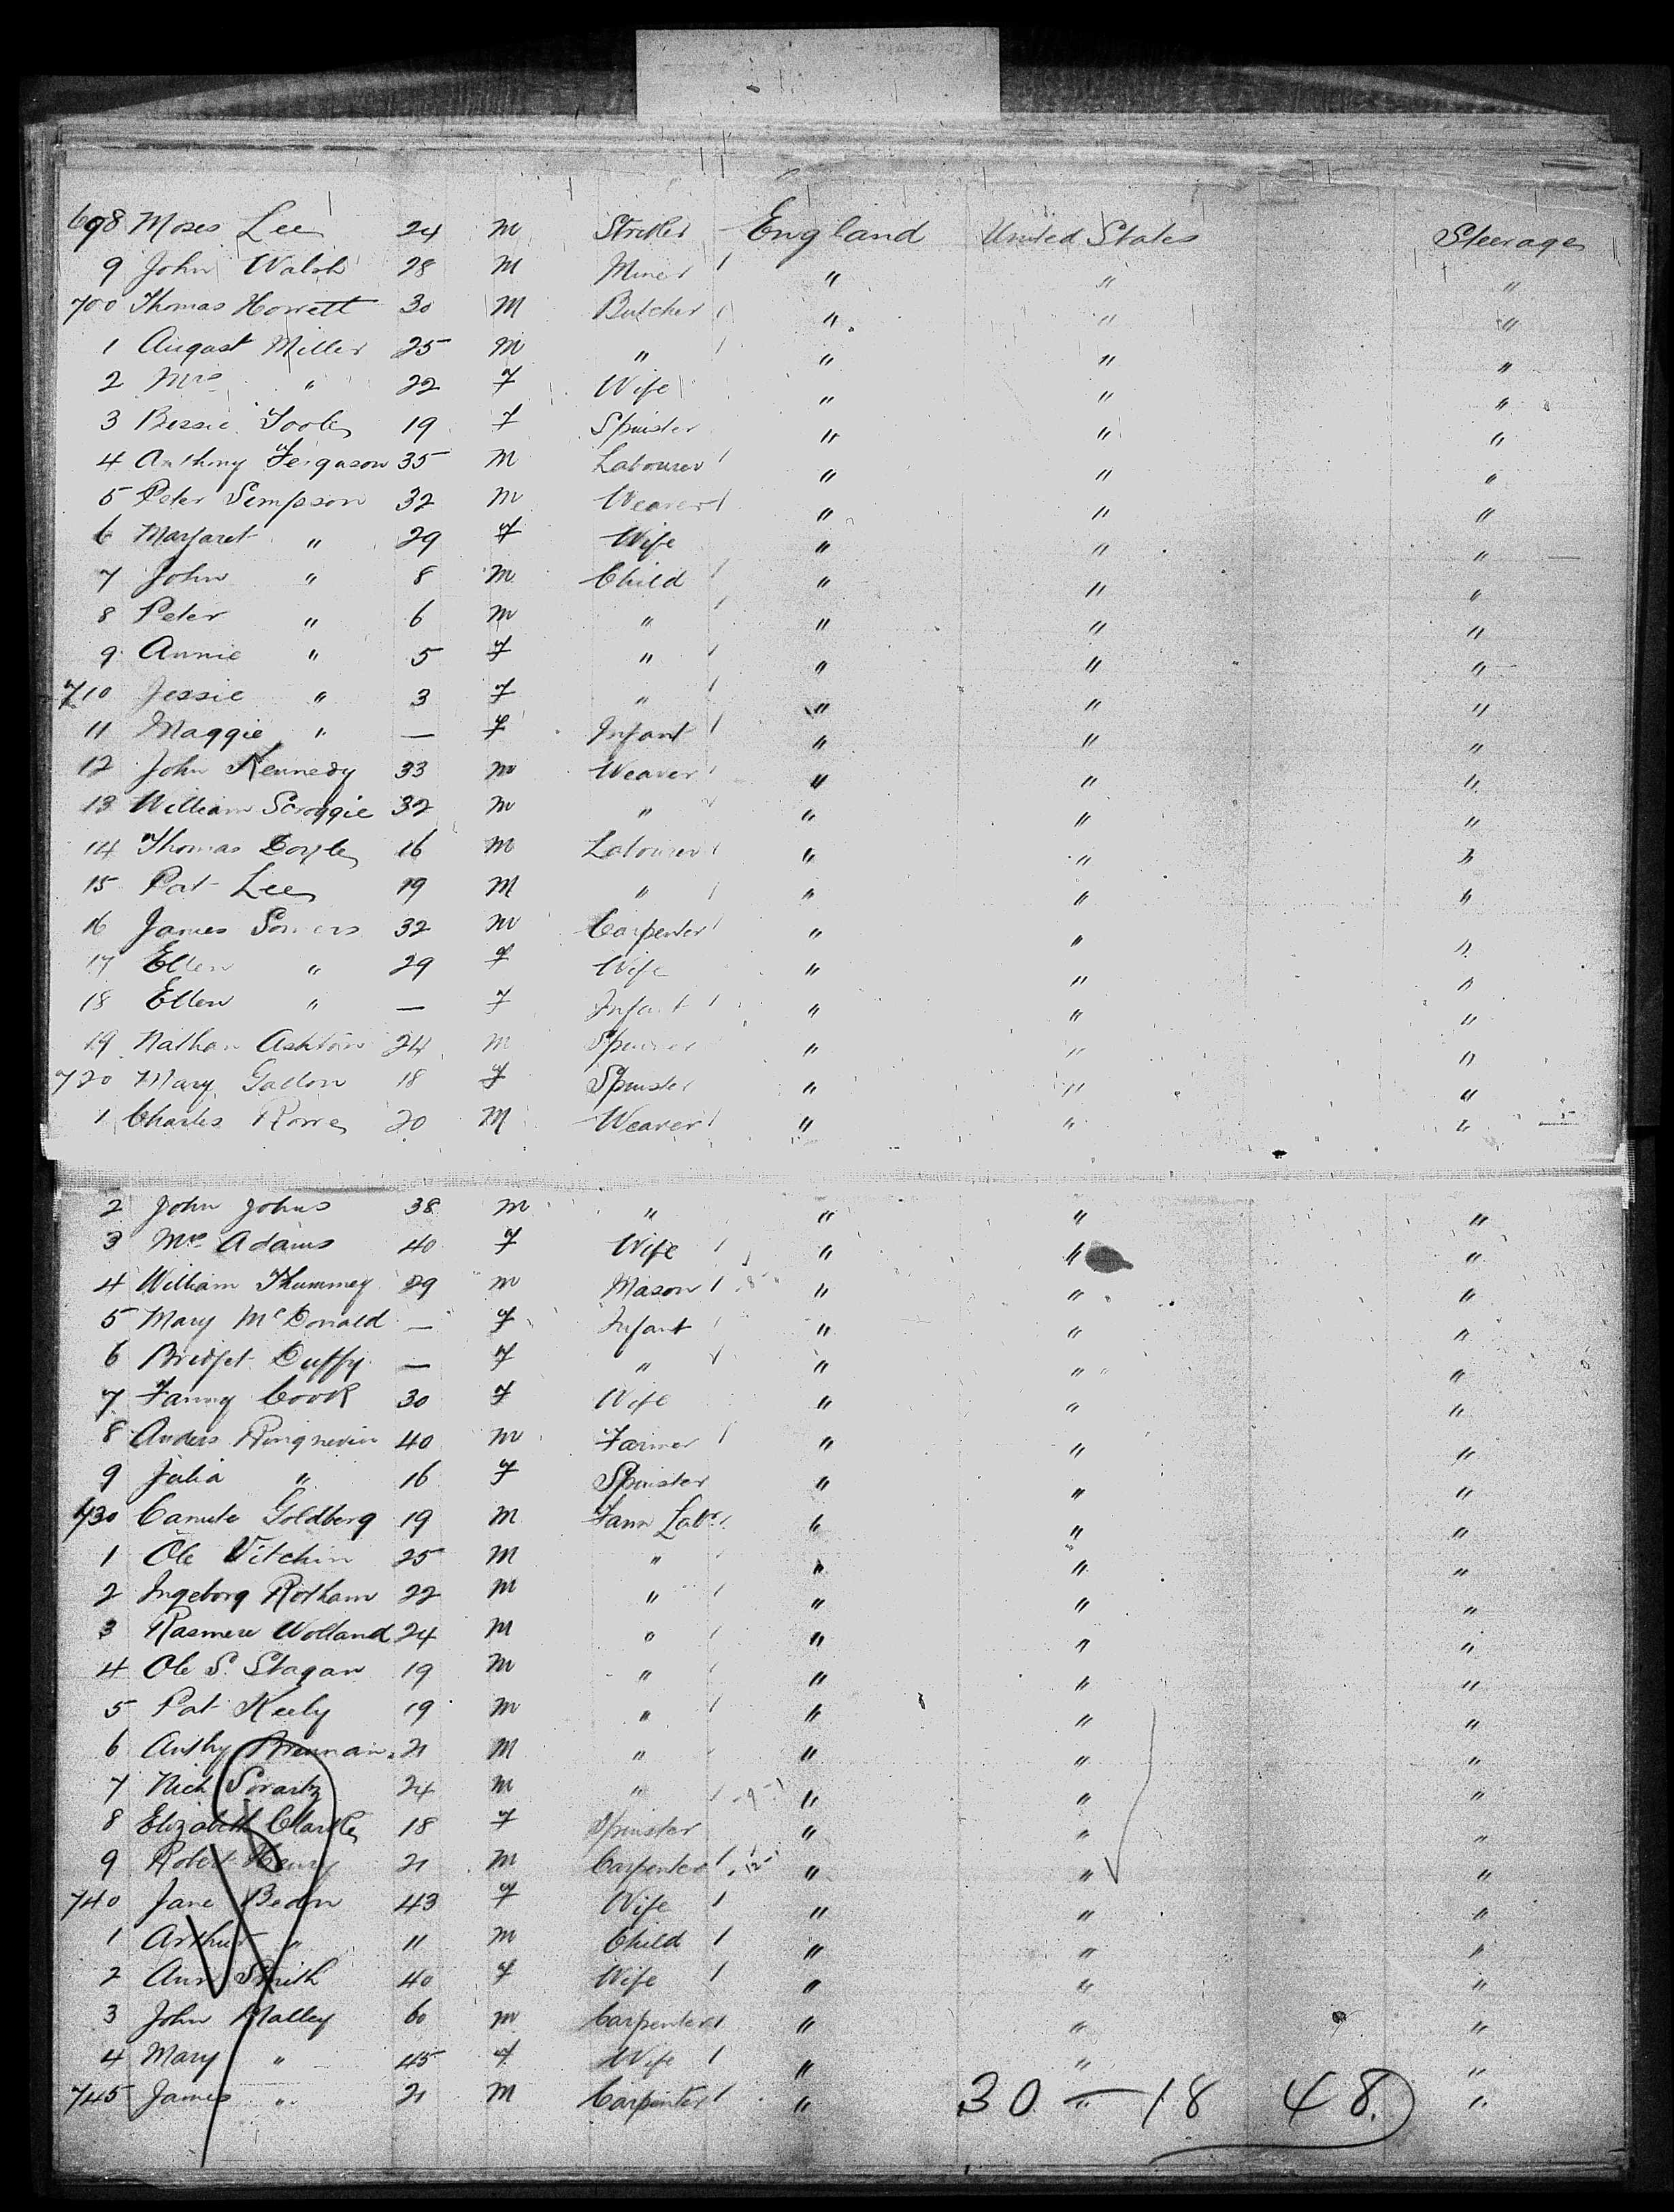 698 Moses Lee 24 M Striker England United States Steerage
9 John Walsh 28 M Miner " " "
700 Thomas Howett 30 M Butcher " " "
1 August Miller 25 M " " " "
2 Mrs " 22 F Wife " " "
3 Bessie Toole 19 F Spinster " " "
4 Anthony Ferguson 35 M Labourer " " "
5 Peter Simpson 32 M Weaver " " "
6 Margaret " 29 F Wife " " "
7 John " 8 M Child " " "
8 Peter " 6 M " " " "
9 Annie " 5 F " " " "
710 Jessie " 3 F " " " "
11 Maggie " — F Infant " " "
12 John Kennedy 33 M Weaver " " "
13 William Scroggie 32 M " " " "
14 Thomas Doyle 16 M Labourer " " "
15 Pat Lee 19 M " " " "
16 James Somers 32 M Carpenter " " "
17 Ellen " 29 F Wife " " "
18 Ellen " — F Infant " " "
19 Nathan Ashton 24 M " " "
720 Mary Gallon 18 F Spinster " " "
1 Charles Rowe 20 M Weaver " " "
2 John Johns 38 M " " " "
3 Mrs Adams 40 F Wife " " "
4 William Thummey 29 M Mason " " "
5 Mary McDonald — F Infant " " "
6 Bridget Duffy — F " " " "
7 Fanny Cook 30 F Wife " " "
8 Anders 40 M Farmer " " "
9 Julia " 16 F Spinster " " "
730 Canute Goldberg 19 M Farm Labr. " " "
1 Ole Vitchin 25 M " " " "
2 Ingeborg Rotham 22 M " " " "
3 Wolland 24 M " " " "
4 Ole S. Stagan 19 M " " " "
5 Pat Keely 19 M " " " "
6 Anthy Brennan 21 M " " " "
7 Nick Swartz 24 M " " " "
8 Elizabeth Clarke 18 F Spinster " " "
9 Robert Henry 21 M Carpenter " " "
740 Jane 43 F Wife " " "
1 Arthur " 11 M Child " " "
2 Ann Smith 40 F Wife " " "
3 John Malley 60 M Carpenter " " "
4 Mary " 45 F Wife " " "
745 James " 21 M Carpenter " " "
30 — 18 48.